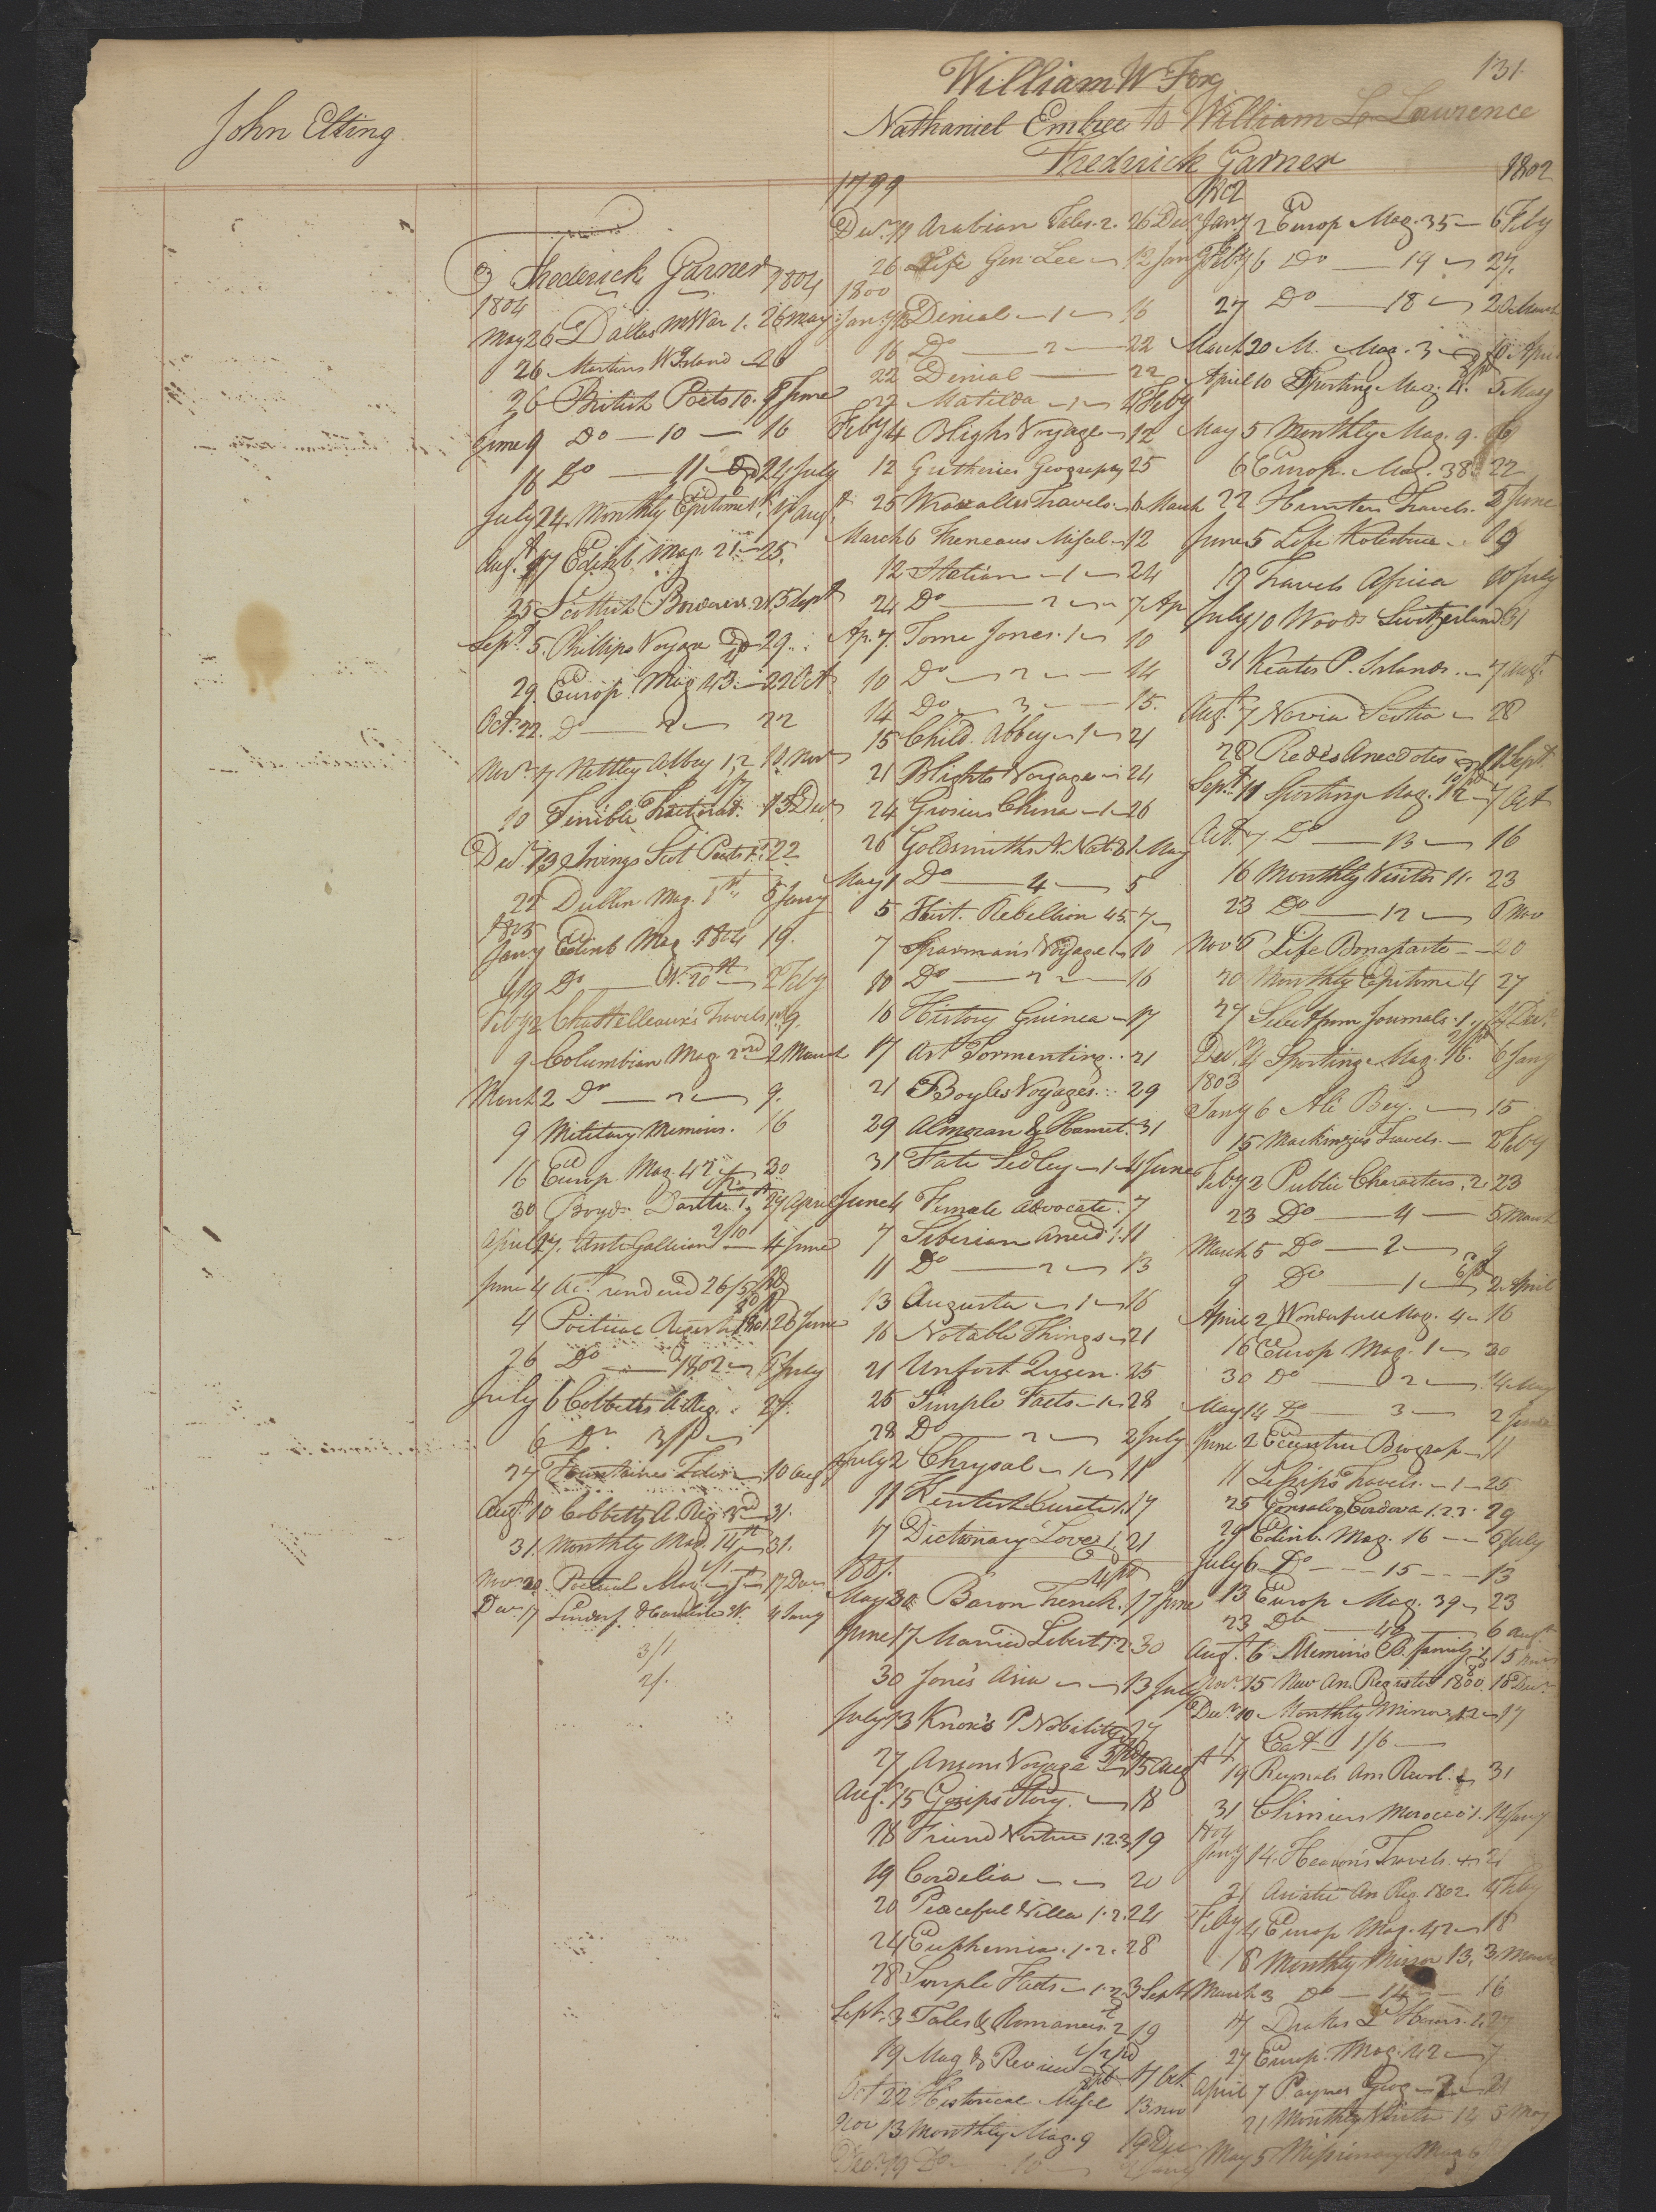 131
John Elting
William W Fog
Nathaniel Embree to William L Lawrence
Frederick Garner
1802
Frederick Garner 1804
1804
May 26 Dallas 1. 26 May
26 Martins W Island 26
26 British Poets 10. 9 June
June 9 Do — 10 — 16
16 Do — 11 24 July
July 24 Monthly Epitome 17 Aug
Augt 17 Edinb. Mag. 21 25.
25 Scottish 5 Sept
Sept. 5. Phillips Voyage 29
29. Europ. Mag 43 — 22 Oct
Oct. 22. Do — 22
Novr 7 Nettley Abbey 1,2 10 Novr
10 Terrible Tractorat. 13 Decr
Decr 13 Irvings Scot Poets 1st 22
22 Dublin Mag. 1st 5 Jany
1805
Jany Edinb Mag 1804 19.
19 Do — N. 20th 2 Feby
Feby 2 Chattelleaux's Travels 9.
9 Columbian Mag. 2nd 2 March
March 2 Do — 9.
9 Military Memoirs. 16
16 Europ. Mag 47 30
30 Boyds Dante 1 27 April
April 27. Anti Gallican — 4 June
June 4 Act. rendered 26/5 pd
4 Poetical Register 1801. 26 June
26 Do — 1802 6 July
July 6 Cobbetts A Reg. 27.
6 Do 3
27 Fountaines Tales 10 Aug
Augt 10 Cobbetts A. Reg 3rd 31.
31. Monthly Mag. 14th 31.
Novr 20 Poetical Mag. 1st 17 Decr
Decr 17 4 Jany
3/1
2/.
1799
Decr 19 Arabian Tales. 2. 26 Decr
26 Life Gen. Lee 12 Jany
1800
Jany 12 Denial — 1 — 16
16 Do — 2 — 22
22 Denial — 22
22 Matilda — 1 — 4 Feby
Feby 4 Blighs Voyage — 12
12 Gutheries Geography 25
25 Wraxalls Travels 6 March
March 6 Theneaus Miscel — 12
12 Italian — 1 — 24
24 Do — 2 — 7 Ap
Ap. 7. Tome Jones. 1 10
10 Do — 2 — 14
14 Do — 3 — 15.
15 Child. Abbey — 1 — 21
21 Blights Voyage 24
24 Grosiers China — 1 — 26
26 Goldsmiths N. Nat. 3 1 May
May 1 Do — 4 — 5
5 Hist. Rebellion 45. 7
7 Sparman's Voyage 1 10
10 Do — 2 — 16
16 History Guinea — 17
17 Art Tormenting. 21
21 Boyles Voyages. 29
29 Almoran & Hamet. 31
31 Fate Sedley — 1 — 4 June
June 4 Female Advocate. 7
7 Siberian Anecd. 1. 11
11 Do — 2 — 13
13 Augusta — 1 — 16
16 Notable Things 21
21 Unfort Queen. 25
25 Simple Facts — 1 — 28
28 Do — 2 — 2 July
July 2 Chrysal — 1 — 11
11 Kentish Curate 1. 17
17 Dictionary Love 1. 21
1801.
May 30 Baron Trenck. 17 June
June 17 Married Libert 1.2. 30
30 Jones Asia — 13 July
July 13 Knox's P Nobility 27
27 Ansons Voyage 15 Augt
Augt. 15 Gosips Story. — 18
18 Friend Virtue 1.2.3 19
19 Cordelia — 20
20 Peaceful Villa 1.2. 24
24 Euphemia. 1.2. 28
28 Simple Facts — 1.2. 3 Sept
Sept. 3 Tales & Romances. 2 19
19 Mag & Review 17 Oct
Oct 22 Historical Miscl 13 nov
Nov 13 Monthly Mag. 9 19 Dec
Decr 19 Do — 10
1802
Jany 2 Europ Mag. 35 — 6 Feby
Feby 6 Do — 19 — 27.
27 Do — 18 — 20 March
March 20 M. Mag. 3 10 April
April 10 Sporting Mag. 11. 5 May
May 5 Monthly Mag. 9. 6
6 Europ. Mag. 38. 22
22 Hunters Travels. 5 June
June 5 Life Kotzebue 19
19 Travels Africa 10 July
July 10 Woods Switzerland 31
31 Keates P. Islands. 7 Augt
Augt. 7 Novia Scotia 28
28 Redes Anecdotes 11 Sept
Sept. 11 Sporting Mag. 12 7 Oct
Oct. 7. Do — 13 — 16
16 Monthly Visitor 11. 23
23 Do — 12 — 6 Nov
Novr 6 Life Bonaparte — 20
20 Monthly Epitome 4 27
27 Select from Journals. 1. 4 Decr
Decr. 4 Sporting Mag. 16. 6 Jany
1803
Jany 6 Ali Bey. — 15
15 Mackinzies Travels. — 2 Feby
Feby 2 Public Characters. 2. 23
23 Do — 4 — 5 March
March 5 Do — 2 — 9
9 Do — 1 — 2 April
April 2 Wonderfull Mag. 4 16
16 Europ Mag. 1 30
30 Do — 2 — 14 May
May 14 Do — 3 — 2 June
June 2 Eccentric Biograp — 11
11 Travels. — 1 — 25
25 Gonsalvo Cordova 1.2.3. 29
29 Edinb. Mag. 16 — 6 July
July 6 Do — 15 — 13
13 Europ Mag. 39 23
23 Do — 40 6 Augt
Augt. 6 Memoirs B. Family. 1 15 Novr
Novr. 15 New An. Register 1800. 10 Decr
Decr. 10 Monthly Mirror 12 17
17 Cat. 1/6
19 Raynals Am Revol. 31
31 Cheniers Morocco 1. 14 Jany
1804
Jany 14. Hearon's Travels 21
21 Asiatic An Reg. 1802. 4 Feby
Feby 4 Europ Mag. 42 18
18 Monthly Mirror 13. 3 March
March 3 Do — 14 — 16
17 Drakes L Hours. 27
27 Europ. Mag. 42 — 7
April 7 Paynes Geog 21
21 Monthly Visitor 12 5 May
May 5 Missionary Mag 6